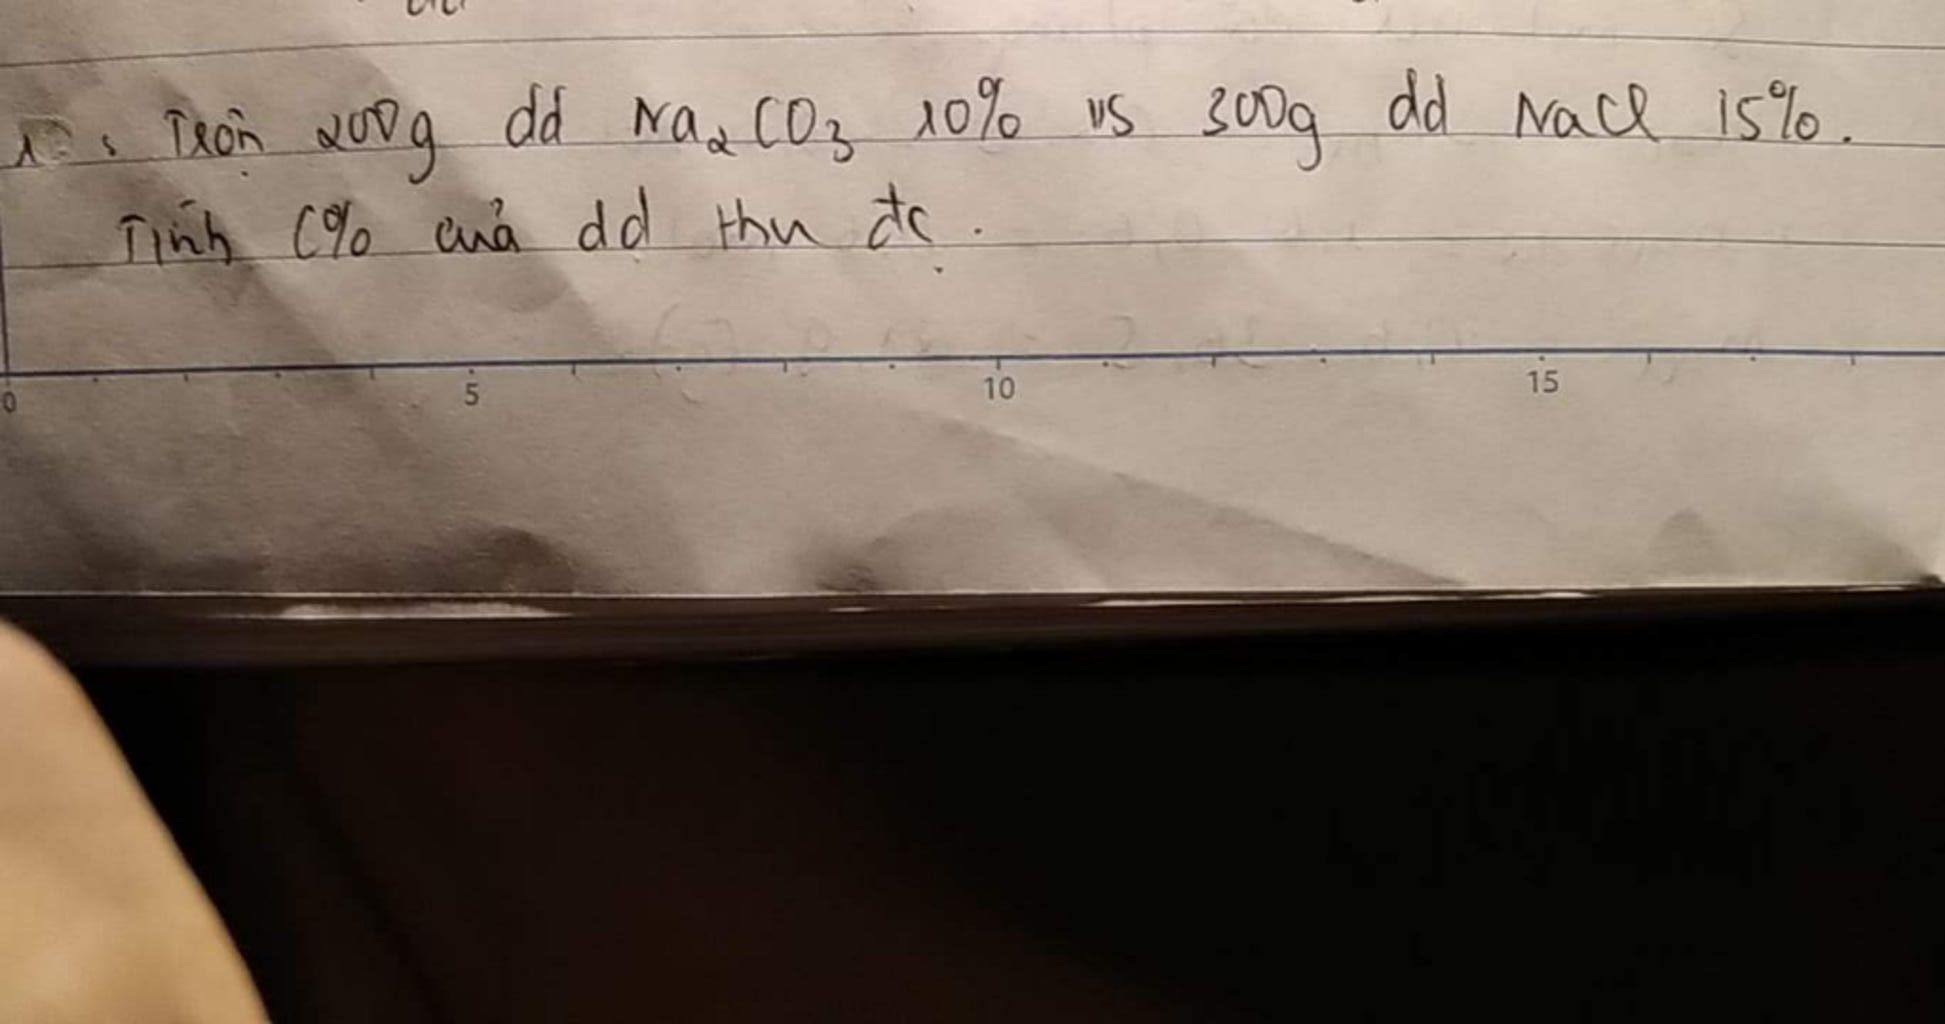 Trộn 200g dd Na₂CO₃ 10% vs 300g dd NaCl 15%.
Tính C% của dd thu đc.
0 5 10 15